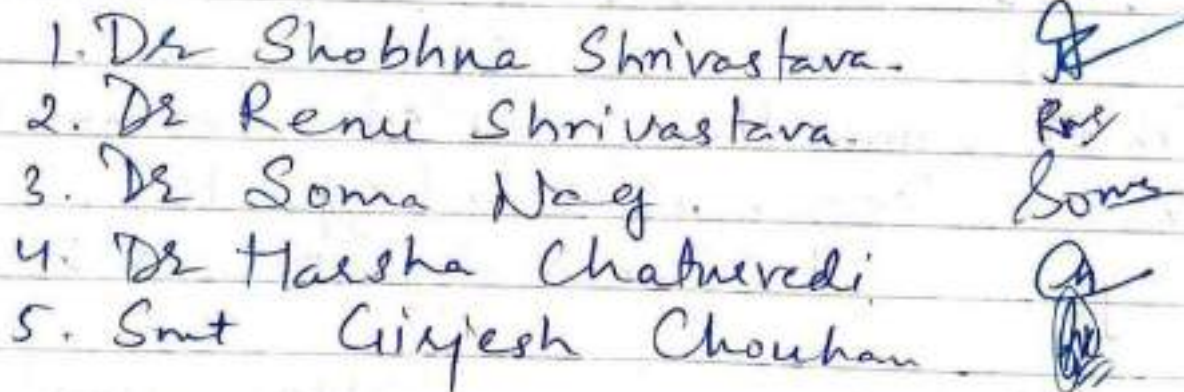 1. Dr Shobhna Shrivastava.
2. Dr Renu Shrivastava.
3. Dr Soma Nag. Soma
4. Dr Harsha Chaturvedi
5. Smt Girjesh Chouhan.